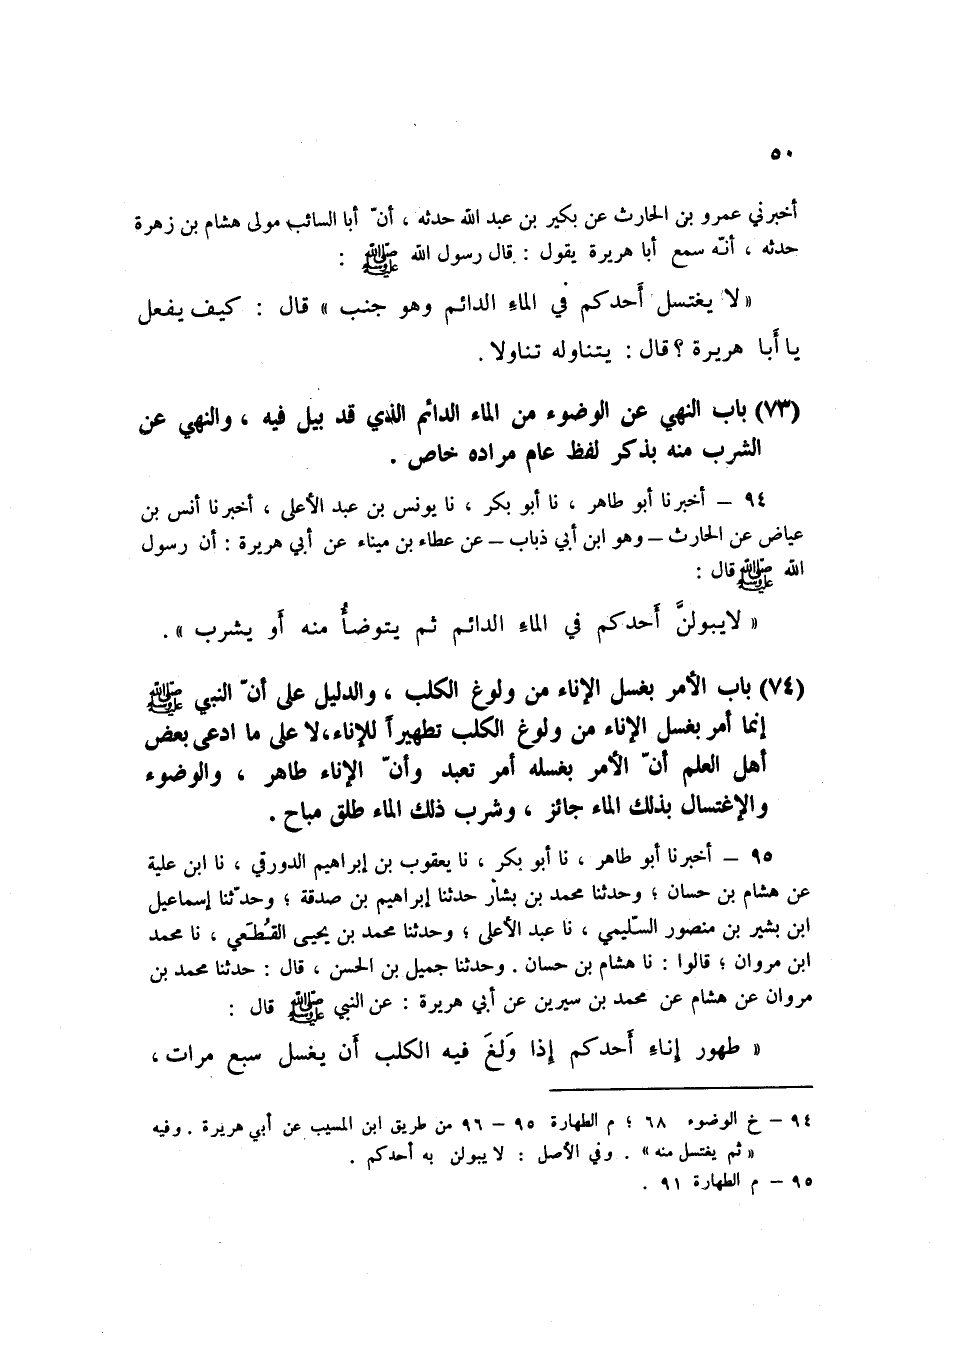 ٥٠
أخبرني عمرو بن الحارث عن بكير بن عبد الله حدثه ، أنّ أبا السائب مولى هشام بن زهرة
حدثه ، أنّه سمع أبا هريرة يقول : قال رسول الله ﷺ :
« لا يغتسل أحدكم في الماء الدائم وهو جنب » قال : كيف يفعل
يا أبا هريرة ؟ قال : يتناوله تناولا .
(٧٣) باب النهي عن الوضوء من الماء الدائم الذي قد بيل فيه ، والنهي عن
الشرب منه بذكر لفظ عام مراده خاص .
٩٤ – أخبرنا أبو طاهر ، نا أبو بكر ، نا يونس بن عبد الأعلى ، أخبرنا أنس بن
عياض عن الحارث – وهو ابن أبي ذباب – عن عطاء بن ميناء عن أبي هريرة : أن رسول
الله ﷺ قال :
« لايبولنَّ أَحدكم في الماء الدائم ثم يتوضأُ منه أَو يشرب » .
(٧٤) باب الأمر بغسل الإناء من ولوغ الكلب ، والدليل على أنّ النبي ﷺ
إنما أمر بغسل الإناء من ولوغ الكلب تطهيراً للإناء،لا على ما ادعى بعض
أهل العلم أنّ الأمر بغسله أمر تعبد وأنّ الإناء طاهر ، والوضوء
والإغتسال بذلك الماء جائز ، وشرب ذلك الماء طلق مباح .
٩٥ – أخبرنا أبو طاهر ، نا أبو بكر ، نا يعقوب بن إبراهيم الدورقي ، نا ابن علية
عن هشام بن حسان ؛ وحدثنا محمد بن بشار حدثنا إبراهيم بن صدقة ؛ وحدّثنا إسماعيل
ابن بشير بن منصور السّليمي ، نا عبد الأعلى ؛ وحدثنا محمد بن يحيى القُطَعي ، نا محمد
ابن مروان ؛ قالوا : نا هشام بن حسان . وحدثنا جميل بن الحسن ، قال : حدثنا محمد بن
مروان عن هشام عن محمد بن سيرين عن أبي هريرة : عن النبي ﷺ قال :
« طهور إناء أَحدكم إذا وَلَغَ فيه الكلب أَن يغسل سبع مرات ،
٩٤ – خ الوضوء ٦٨ ؛ م الطهارة ٩٥ – ٩٦ من طريق ابن المسيب عن أبي هريرة . وفيه
« ثم يغتسل منه » . وفي الأصل : لا يبولن به أحدكم .
٩٥ – م الطهارة ٩١ .